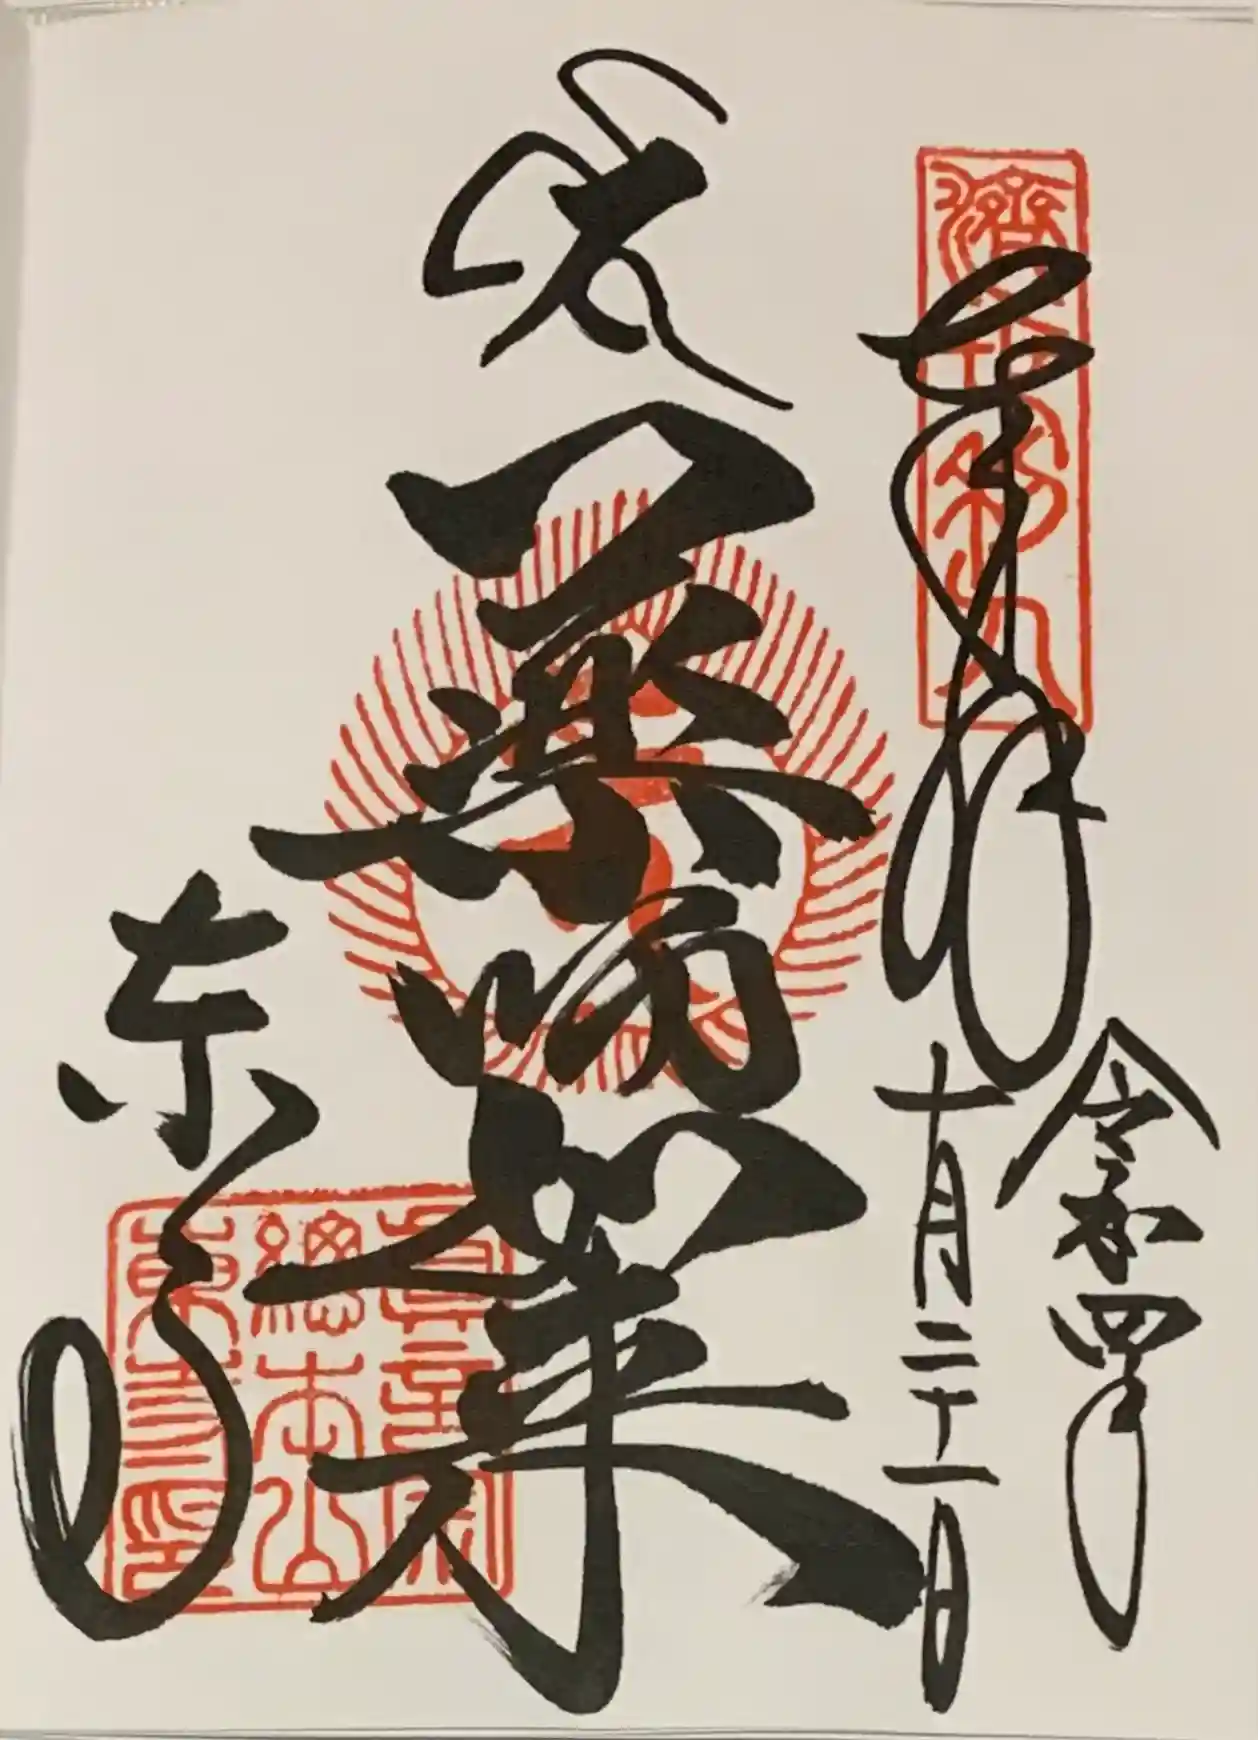 濟世利人
奉拝
令和四年
十月二十一日
薬師如来
東寺
真言宗
總本山
東寺印